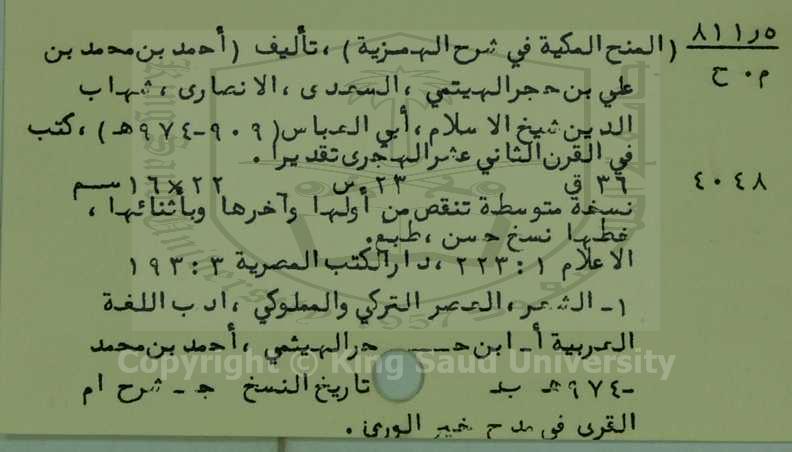 ٨١١ر٥ (المنح المكية في شرح الهمزية) ،تأليف (أحمد بن محمد بن
م٠ح علي بن حجر الهيتمي ،السعدى ،الانصارى ،شهاب
الدين شيخ الاسلام ،أبي العباس(٩٠٩-٩٧٤هـ) ،كتب
في القرن الثاني عشر الهجرى تقديرا .
٤٠٤٨ ٣٦ ق ٢٣ س ٢٢×١٦ سم
نسخة متوسطة تنقص من أولها وآخرها وبأثنائها ،
خطها نسخ حسن ،طبع.
الاعلام ١ : ٢٢٣ ،دار الكتب المصرية ٣ : ١٩٣
١- الشعر ،العصر التركي والمملوكي ،ادب اللغة
العربية أ- ابن حـ حر الهيثمي ،أحمد بن محمد
-٩٧٤هـ بـ تاريخ النسخ جـ - شرح ام
القرى في مدح خير الورى .
Copyright © King Saud University
King Saud University
1957